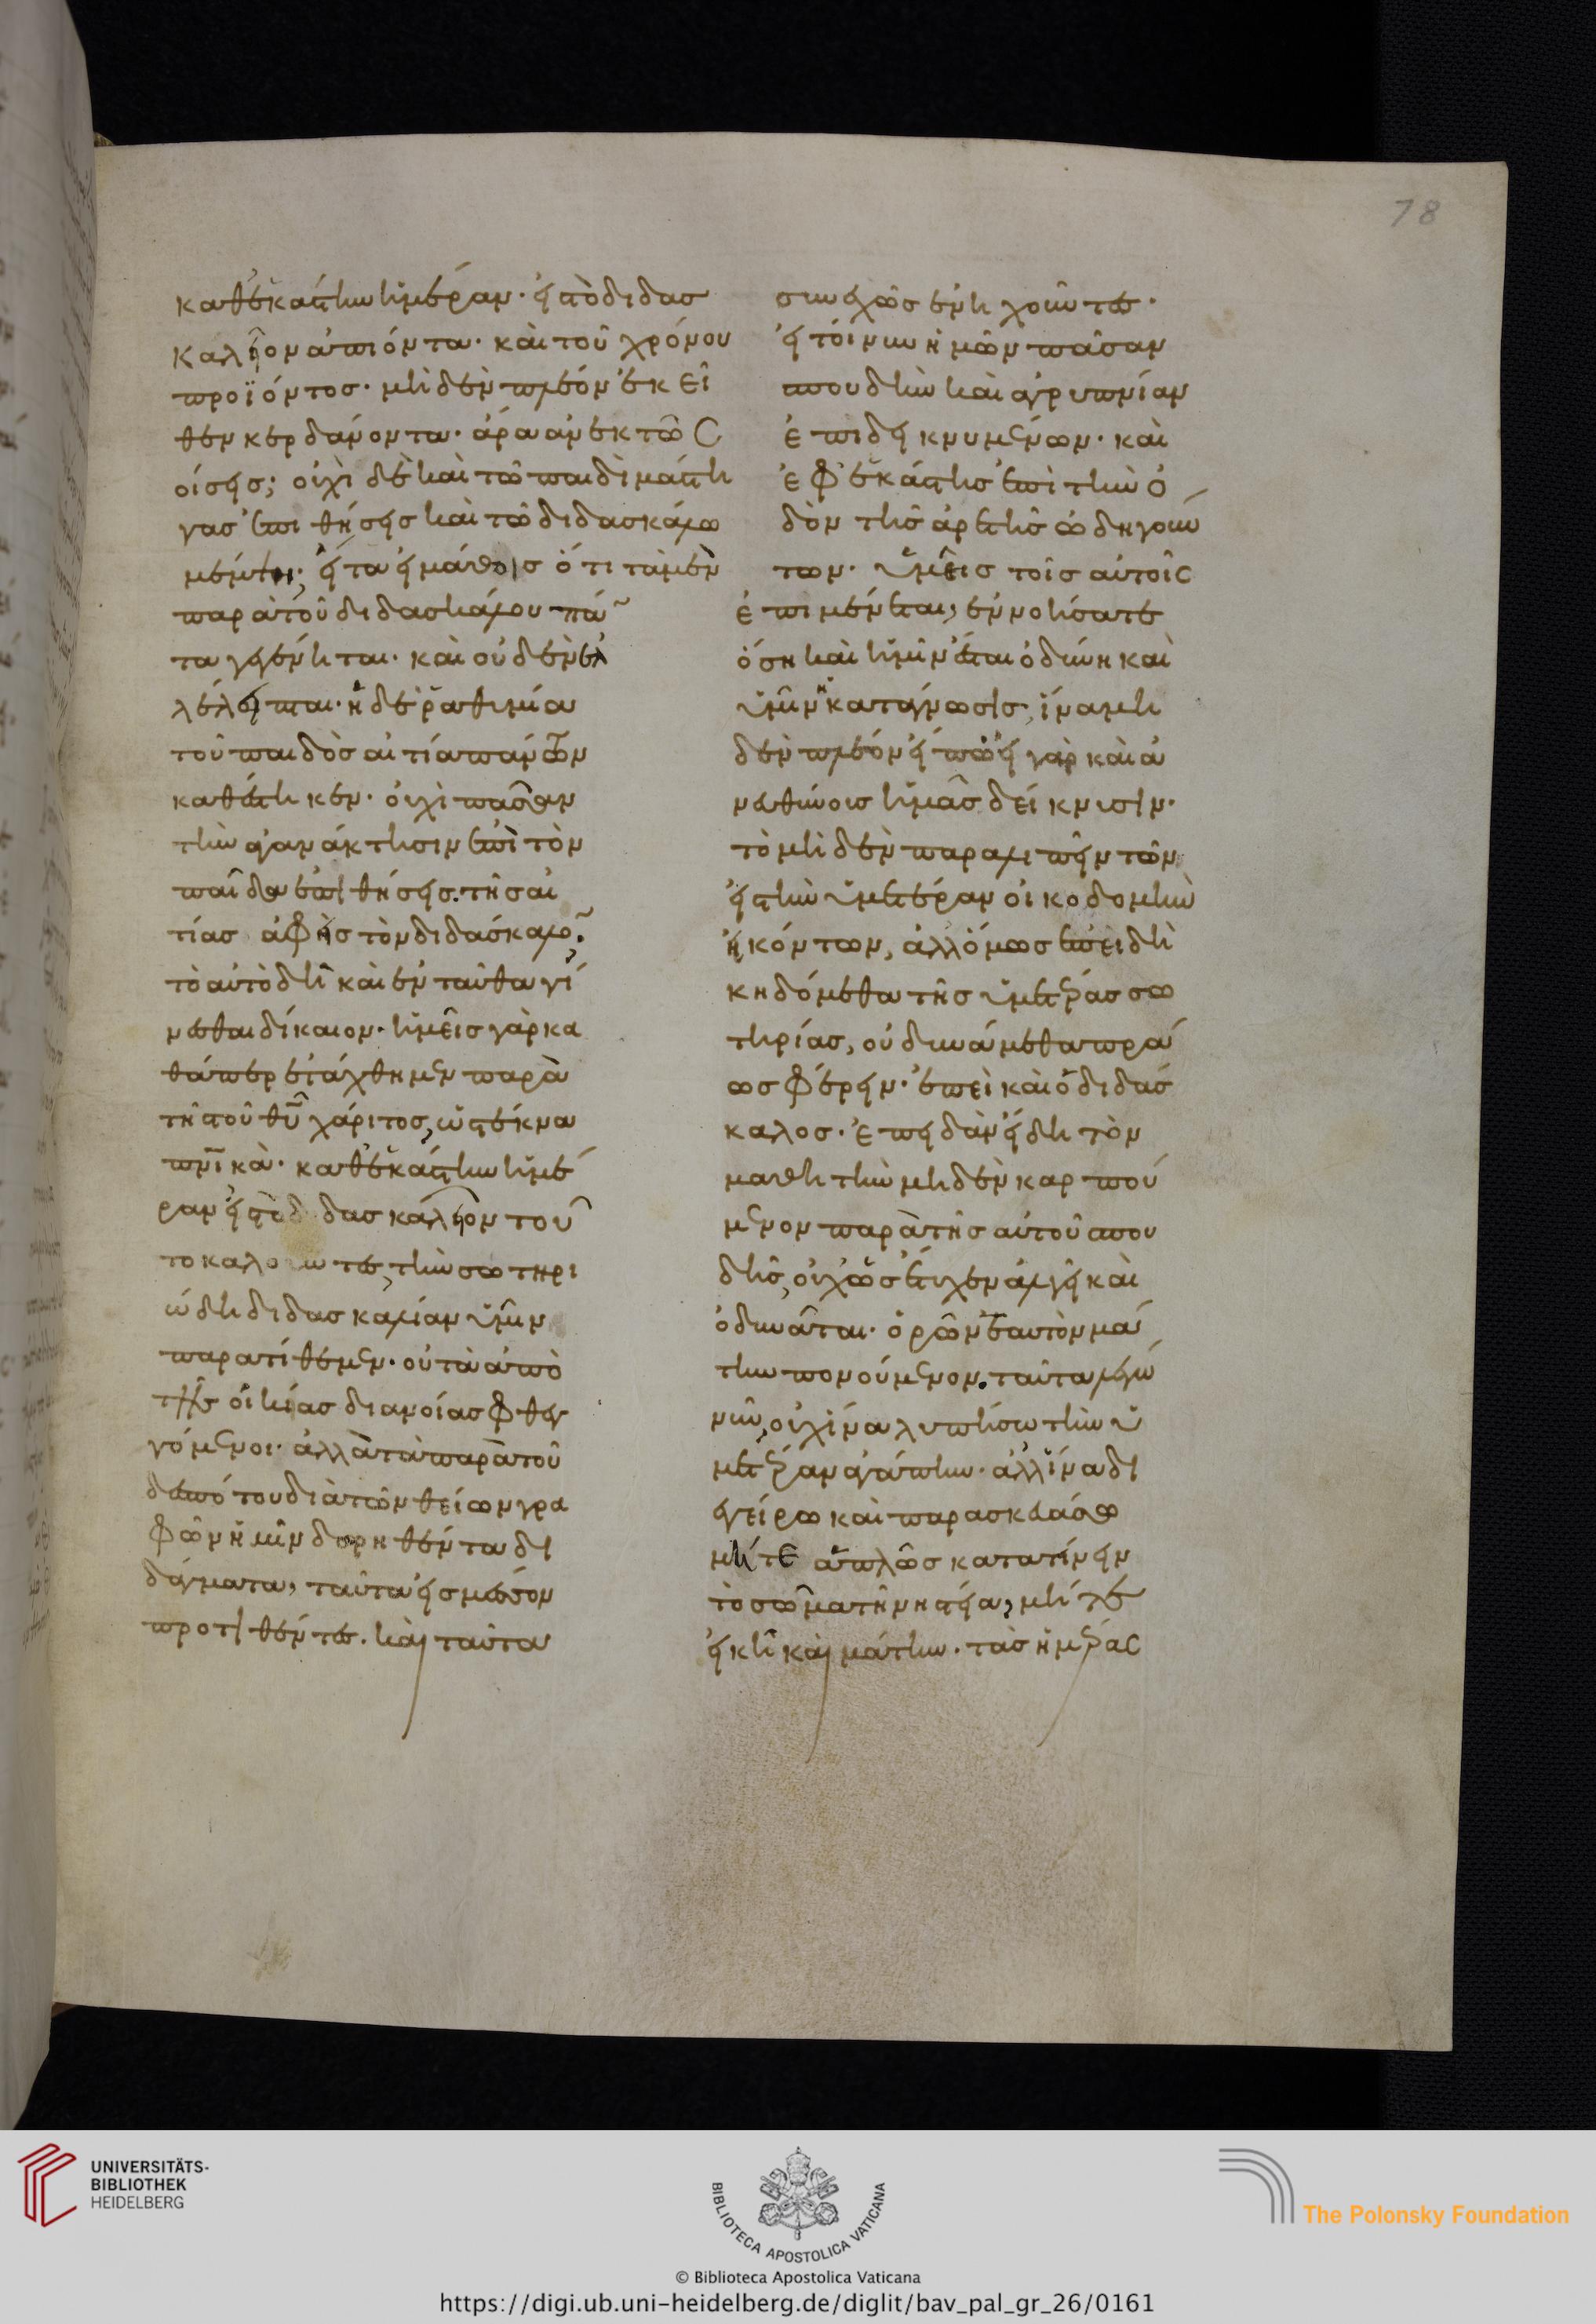 78
καθεκάστην ἡμέραν· εἰς τὸ διδασ
καλεῖον ἀπιόντα· καὶ τοῦ χρόνου
προϊόντος· μηδὲν πλέον ἐκεῖ
θεν κερδαίνοντα· ἄρα ἀνεκτῶς
οἴσεις; οὐχὶ δὲ καὶ τῶ παιδὶ μάστι
γας ἐπιθήσεις καὶ τῶ διδασκάλω
μέμψη; εἶτα εἰ μάθοις ὅτι τὰ μὲν
παρὰ τοῦ διδασκάλου πάν
τα γεγένηται· καὶ οὐδὲν ἐλ
λέλειπται· ἡ δὲ ῥαθυμία
τοῦ παιδὸς αἰτία πάντων
καθέστηκεν· οὐχὶ πᾶσαν
τὴν ἀγανάκτησιν ἐπὶ τὸν
παῖδα ἐπιθήσεις. τῆς αἰ
τίας ἀφεὶς τὸν διδάσκαλον;
τὸ αὐτὸ δὴ καὶ ἐνταῦθα γί
νεσθαι δίκαιον· ἡμεῖς γὰρ κα
θάπερ ἐτάχθημεν παρὰ
τῆς τοῦ θυ χάριτος, ὥστε ἔκνα
πνικὰ· καθεκάστην ἡμέ
ραν εἰς τὸ διδασκαλεῖον τοῦ
το καλοῦντες, τὴν σωτηρι
ώδη διδασκαλίαν ὑμῖν
παρατίθεμεν· οὐ τὰ ἀπὸ
τῆς οἰκείας διανοίας φθεγ
γόμενοι· ἀλλὰ τὰ παρὰ τοῦ
δεσπότου διὰ τῶν θείων γρα
φῶν ἡμῖν δωρηθέντα δι
δάγματα, ταῦτα εἰς μέσον
προτιθέντες. καὶ ταῦτα
συνεχῶς ἐνηχοῦντες·
εἰ τοίνυν ἡμῶν πᾶσαν
σπουδὴν καὶ ἀγρυπνίαν
ἐπιδεικνυμένων· καὶ
ἐφ' ἑκάστης ἐπὶ τὴν ὁ
δὸν τῆς ἀρετῆς ὡδηγούν
των· ὑμεῖς τοῖς αὐτοῖς
ἐπιμένεται, ἐννοήσατε
ὅση καὶ ἡμῖν ἔσται ὀδύνη καὶ
ὑμῖν ἡ κατάγνωσις, ἵνα μη
δὲν πλέον εἴπω· εἰ γὰρ καὶ ἀ
νευθύνους ἡμᾶς δείκνυσιν·
τὸ μηδὲν παραλιπεῖν τῶν
εἰς τὴν ὑμετέραν οἰκοδομὴν
ἡκόντων, ἀλλ' ὅμως ἐπειδὴ
κηδόμεθα τῆς ὑμετέρας σω
τηρίας, οὐ δυνάμεθα πρά
ως φέρειν· ἐπεὶ καὶ ὁ διδάσ
καλος· ἐπειδὰν εἴδη τὸν
μαθητὴν μηδὲν καρπού
μενον παρὰ τῆς αὐτοῦ σπου
δῆς, οὐχ ὡς ἔτυχεν ἀλγεῖ καὶ
ὀδυνᾶται· ὁρῶν ἑαυτὸν μά
την πονούμενον. ταῦτα λέγω
νῦν, οὐχ ἵνα λυπήσω τὴν ὑ
μετέραν ἀγάπην· ἀλλ' ἵνα δι
εγείρω καὶ παρασκευάσω
μήτε ἁπλῶς κατατείνειν
τὸ σῶμα τῆ νηστεία, μήτε
εἰκῆ καὶ μάτην· τὰς ἡμέρας
UNIVERSITÄTS-
BIBLIOTHEK
HEIDELBERG
BIBLIOTECA APOSTOLICA VATICANA
The Polonsky Foundation
© Biblioteca Apostolica Vaticana
https://digi.ub.uni-heidelberg.de/diglit/bav_pal_gr_26/0161